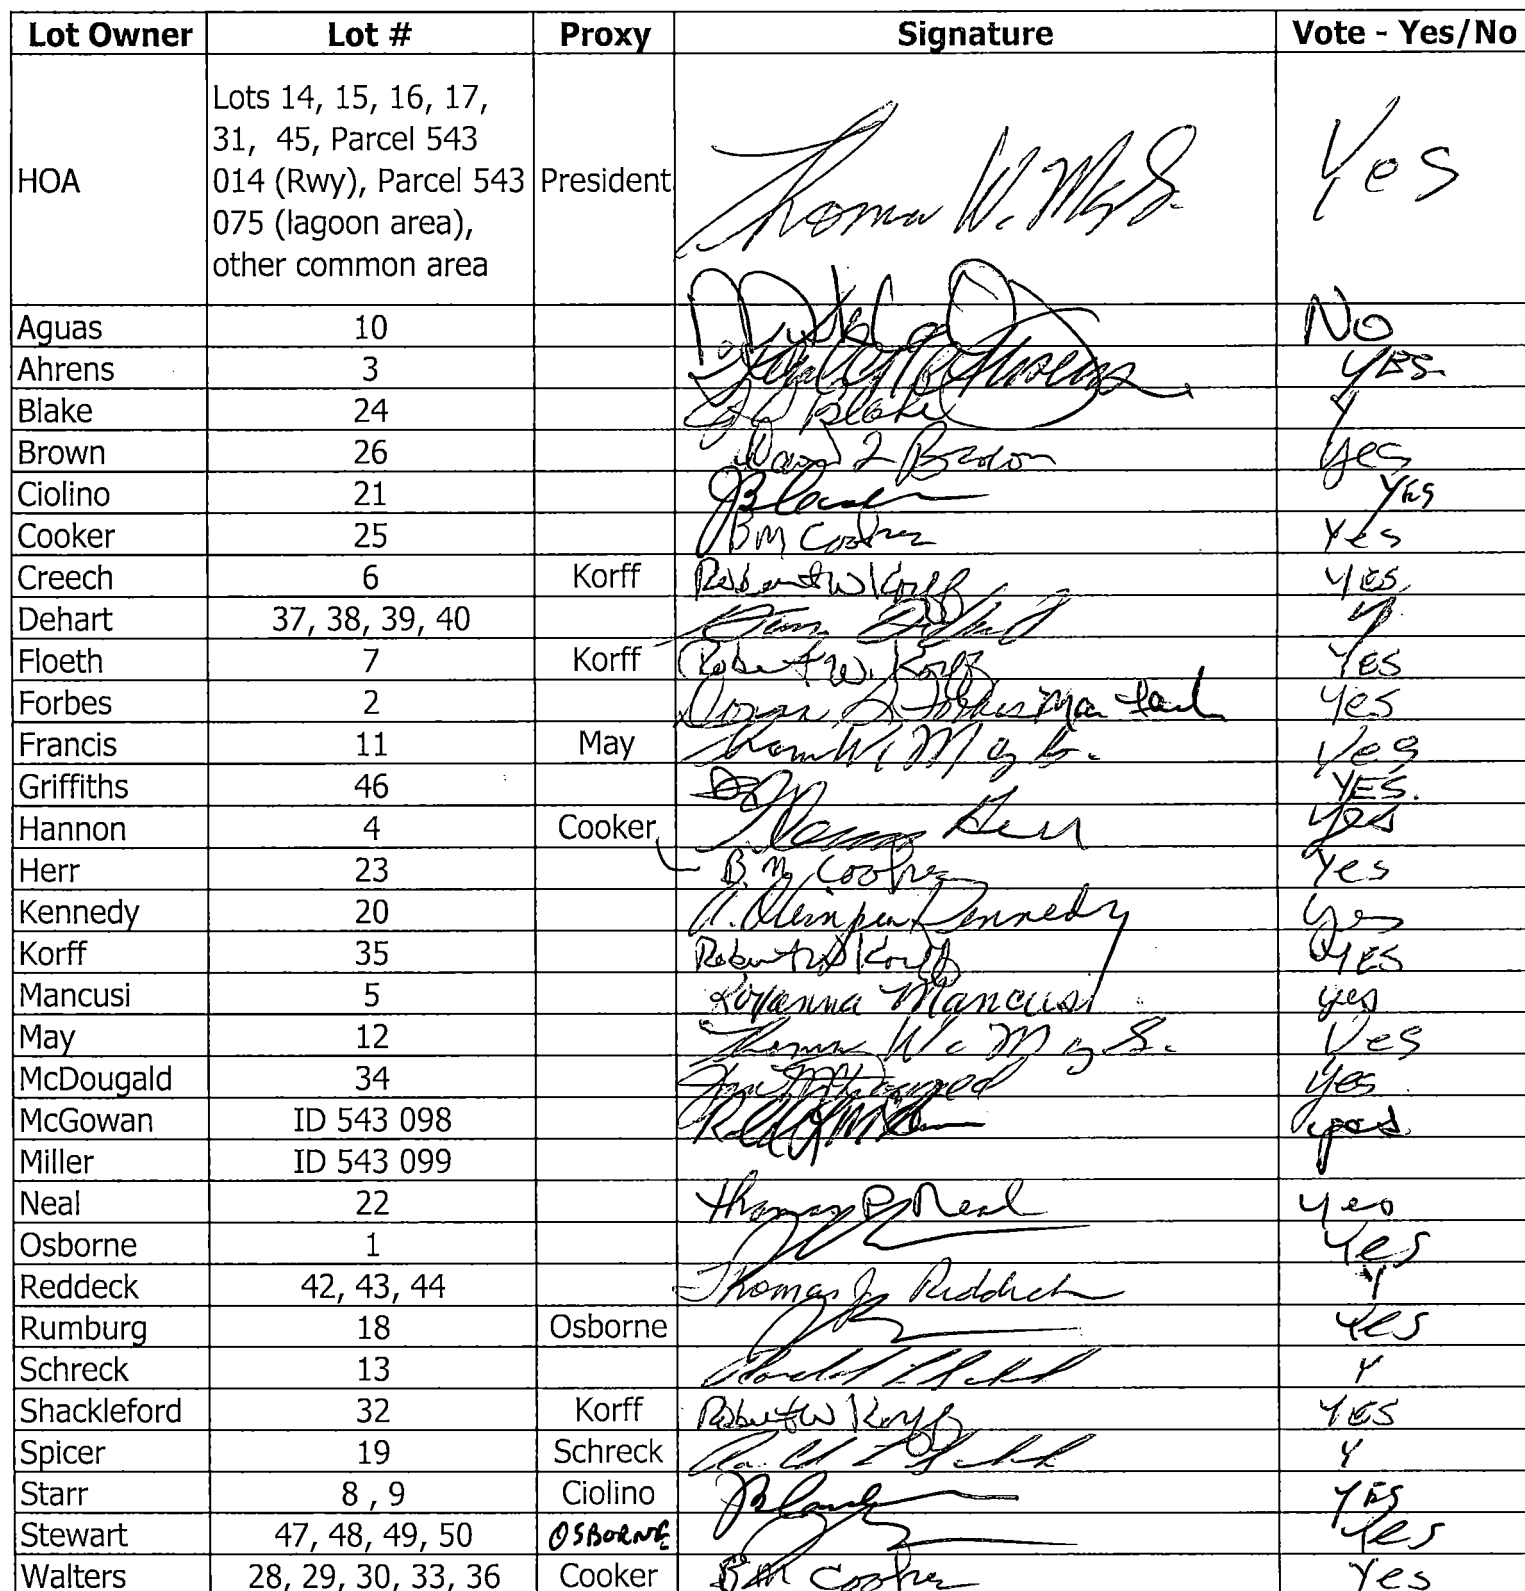 Lot Owner Lot # Proxy Signature Vote - Yes/No
HOA Lots 14, 15, 16, 17, 31, 45, Parcel 543 014 (Rwy), Parcel 543 075 (lagoon area), other common area President Thomas W. May Yes
Aguas 10 No
Ahrens 3 Ahrens YES
Blake 24 Blake Y
Brown 26 David L Brown Yes
Ciolino 21 YES
Cooker 25 BM Cooker Yes
Creech 6 Korff Robert W Korff YES
Dehart 37, 38, 39, 40 Y
Floeth 7 Korff Robert W. Korff YES
Forbes 2 Forbes Yes
Francis 11 May Thomas W. May Yes
Griffiths 46 YES.
Hannon 4 Cooker Herr Yes
Herr 23 B.M. Cooker Yes
Kennedy 20 Kennedy Yes
Korff 35 Robert W Korff YES
Mancusi 5 Mancusi yes
May 12 Thomas W. May Yes
McDougald 34 yes
McGowan ID 543 098
Miller ID 543 099
Neal 22 Thomas P. Neal Yes
Osborne 1 Yes
Reddeck 42, 43, 44 Thomas J. Reddick Y
Rumburg 18 Osborne Yes
Schreck 13 Y
Shackleford 32 Korff Robert W Korff YES
Spicer 19 Schreck Y
Starr 8 , 9 Ciolino YES
Stewart 47, 48, 49, 50 OSBORNE Yes
Walters 28, 29, 30, 33, 36 Cooker BM Cooker Yes